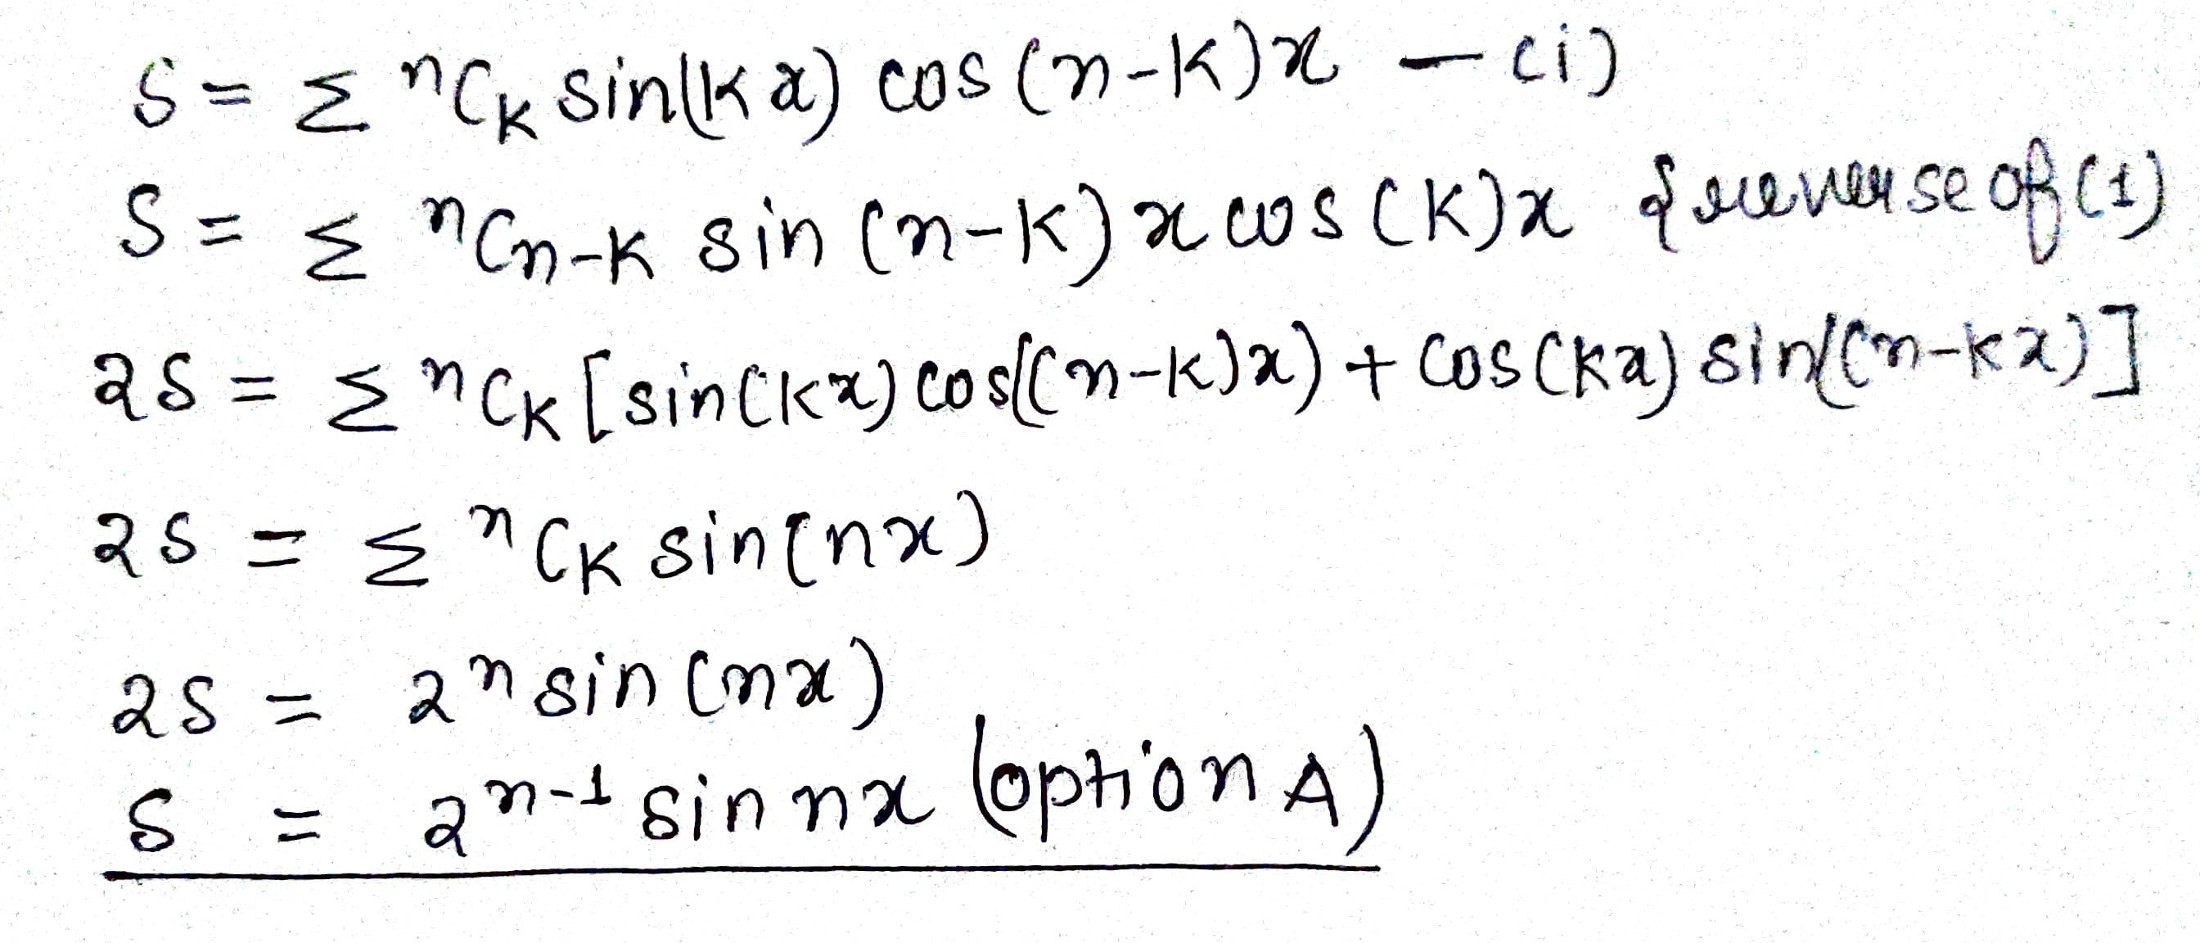 S = Σ ⁿCₖ sin(kx) cos(n-k)x — (i)
S = Σ ⁿCₙ₋ₖ sin(n-k)x cos(k)x {reverse of (1)
2S = Σ ⁿCₖ [sin(kx) cos((n-k)x) + cos(kx) sin((n-kx)]
2S = Σ ⁿCₖ sin(nx)
2S = 2ⁿ sin(nx)
S = 2ⁿ⁻¹ sin nx (option A)